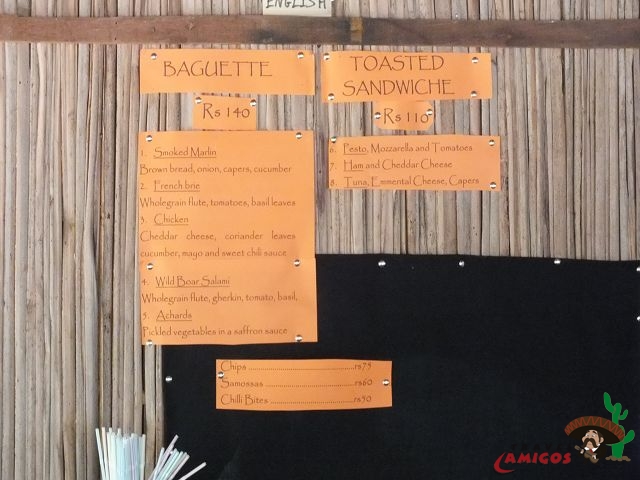 ENGLISH
BAGUETTE
Rs 140
1. Smoked Marlin
Brown bread, onion, capers, cucumber
2. French brie
Wholegrain flute, tomatoes, basil leaves
3. Chicken
Cheddar cheese, coriander leaves
cucumber, mayo and sweet chili sauce
4. Wild Boar Salami
Wholegrain flute, gherkin, tomato, basil,
5. Achards
Pickled vegetables in a saffron sauce
TOASTED
SANDWICHE
Rs 110
6. Pesto, Mozzarella and Tomatoes
7. Ham and Cheddar Cheese
8. Tuna, Emmental Cheese, Capers
Chips ..........................................rs75
Samossas ....................................rs60
Chilli Bites ...................................rs50
AMIGOS